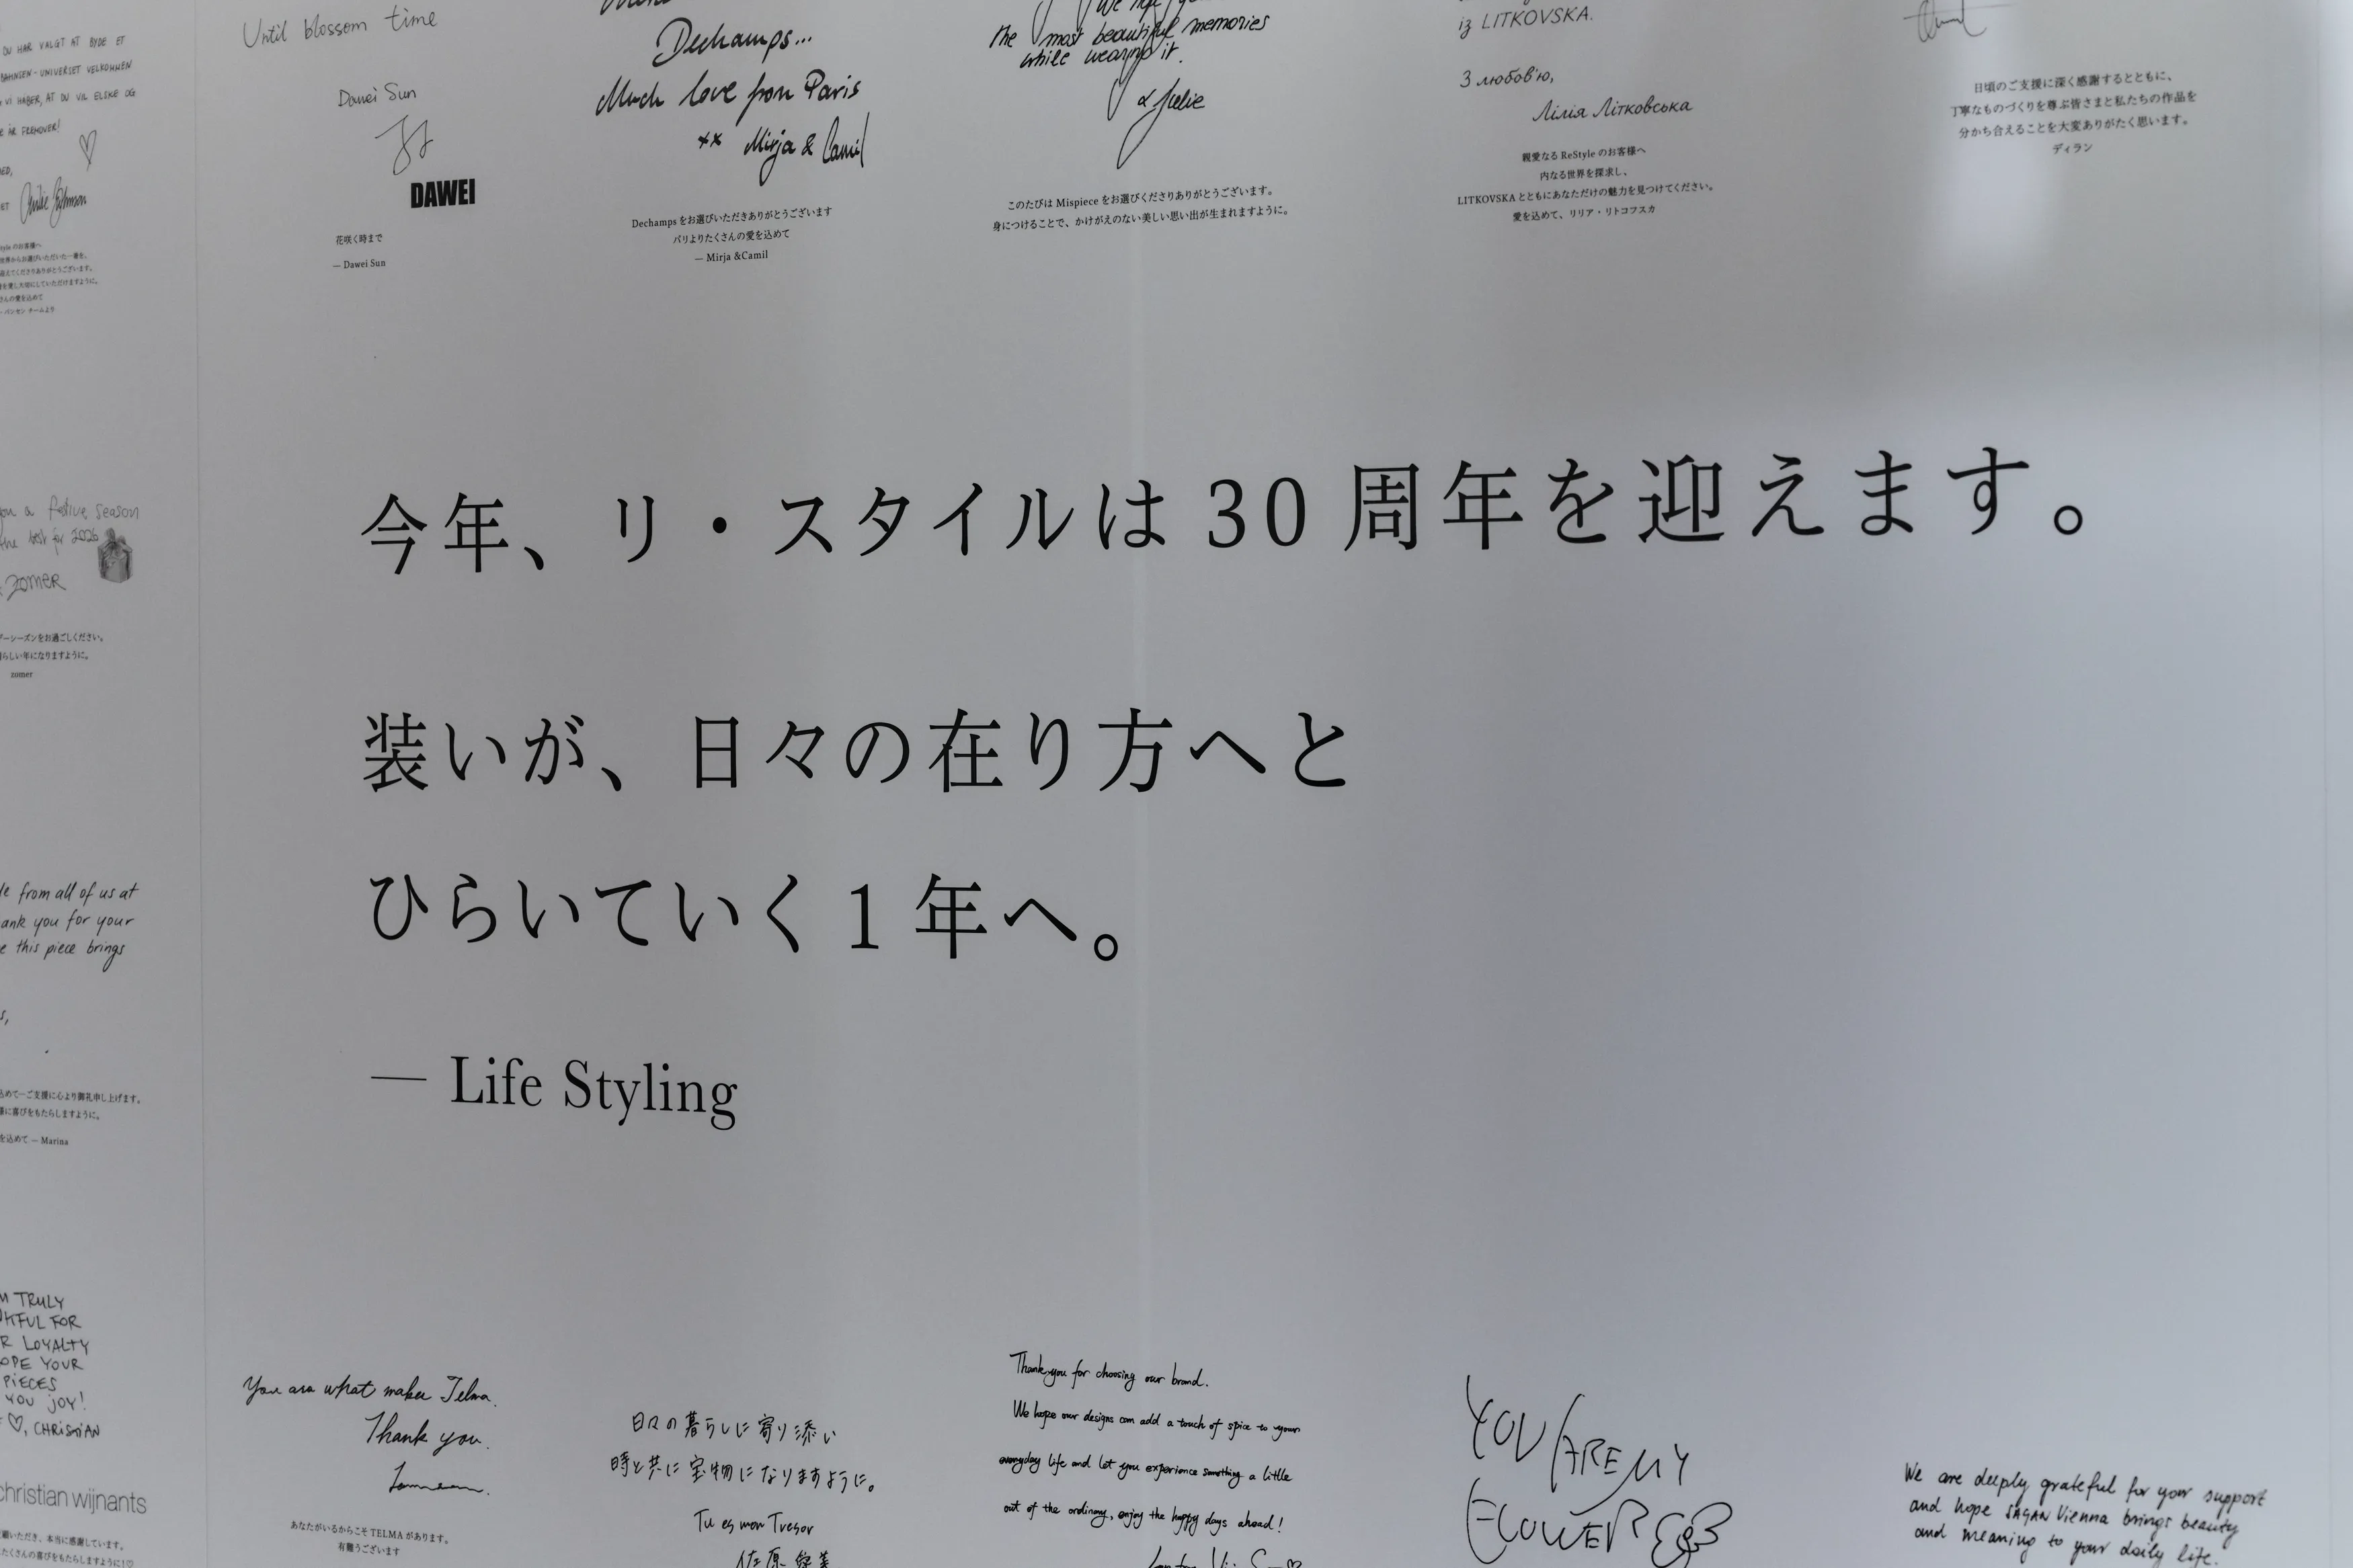 DU HAR VALGT AT BYDE ET
VELKOMMEN
VI HÅBER, AT DU VIL ELSKE OG
ÅR FREMOVER!
のお客様へ
Until blossom time
Dawei Sun
DAWEI
花咲く時まで
— Dawei Sun
Dechamps...
Much love from Paris
xx Mirja & Camil
Dechamps をお選びいただきありがとうございます
パリよりたくさんの愛を込めて
— Mirja &Camil
the most beautiful memories
while wearing it.
Julie
このたびは Mispiece をお選びくださりありがとうございます。
身につけることで、かけがえのない美しい思い出が生まれますように。
із LITKOVSKA.
З любов'ю,
Лілія Літковська
親愛なる ReStyle のお客様へ
内なる世界を探求し、
LITKOVSKA とともにあなただけの魅力を見つけてください。
愛を込めて、リリア・リトコフスカ
日頃のご支援に深く感謝するとともに、
丁寧なものづくりを尊ぶ皆さまと私たちの作品を
分かち合えることを大変ありがたく思います。
ディラン
a festive season
the best for 2026
zomer
シーズンをお過ごしください。
らしい年になりますように。
zomer
今年、リ・スタイルは 30 周年を迎えます。
装いが、日々の在り方へと
ひらいていく 1 年へ。
— Life Styling
from all of us at
thank you for your
this piece brings
ご支援に心より御礼申し上げます。
に喜びをもたらしますように。
を込めて — Marina
TRULY
FOR
LOYALTY
YOUR
PIECES
YOU JOY!
♡, CHRISTIAN
christian wijnants
いただき、本当に感謝しています。
たくさんの喜びをもたらしますように!♡
You are what makes Telma.
Thank you.
あなたがいるからこそ TELMA があります。
有難うございます
日々の暮らしに寄り添い
時と共に宝物になりますように。
Tu es mon Tresor
佐原
Thank you for choosing our brand.
We hope our designs can add a touch of spice to your
everyday life and let you experience something a little
out of the ordinary, enjoy the happy days ahead!
YOU ARE MY
FLOWER
We are deeply grateful for your support
and hope SAGAN Vienna brings beauty
and meaning to your daily life.